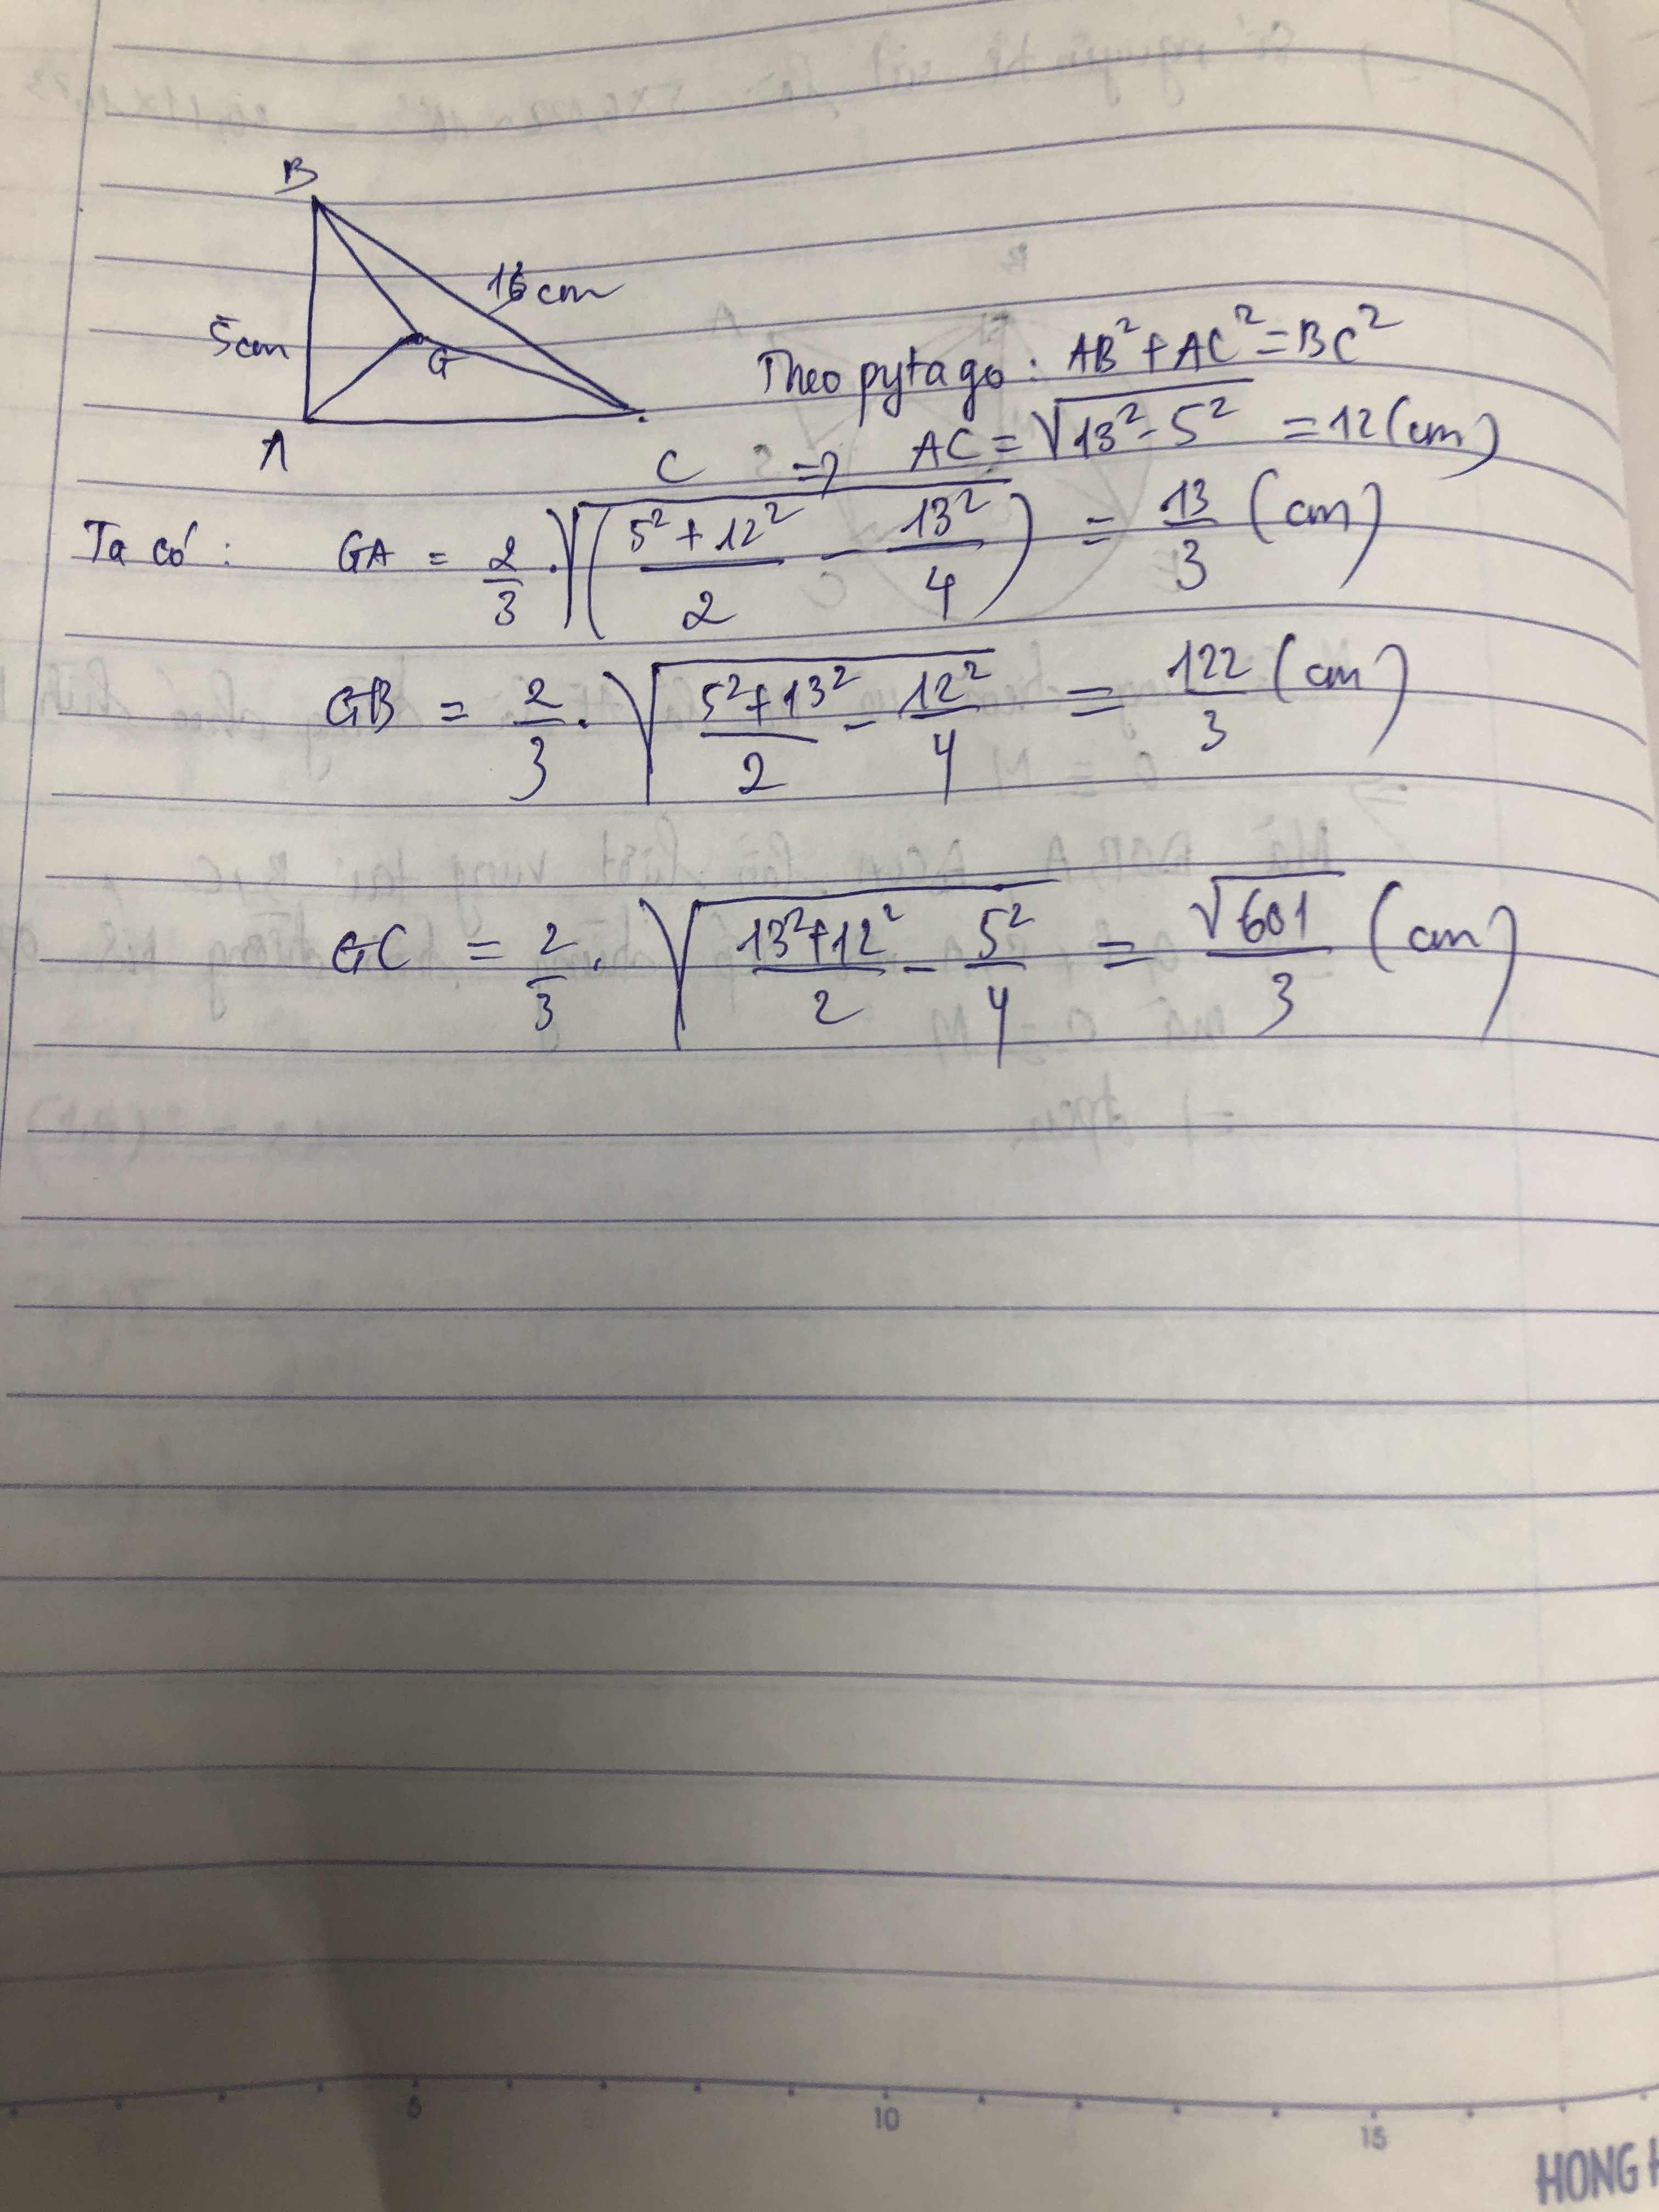 B
13cm
5cm
G
A
C
Theo pytago: AB² + AC² = BC²
=> AC = √(13² - 5²) = 12 (cm)
Ta có: GA = 2/3 . √((5² + 12²)/2 - 13²/4) = 13/3 (cm)
GB = 2/3 . √((5² + 13²)/2 - 12²/4) = 122/3 (cm)
GC = 2/3 . √((13² + 12²)/2 - 5²/4) = √601/3 (cm)
5 10 15
HONG H